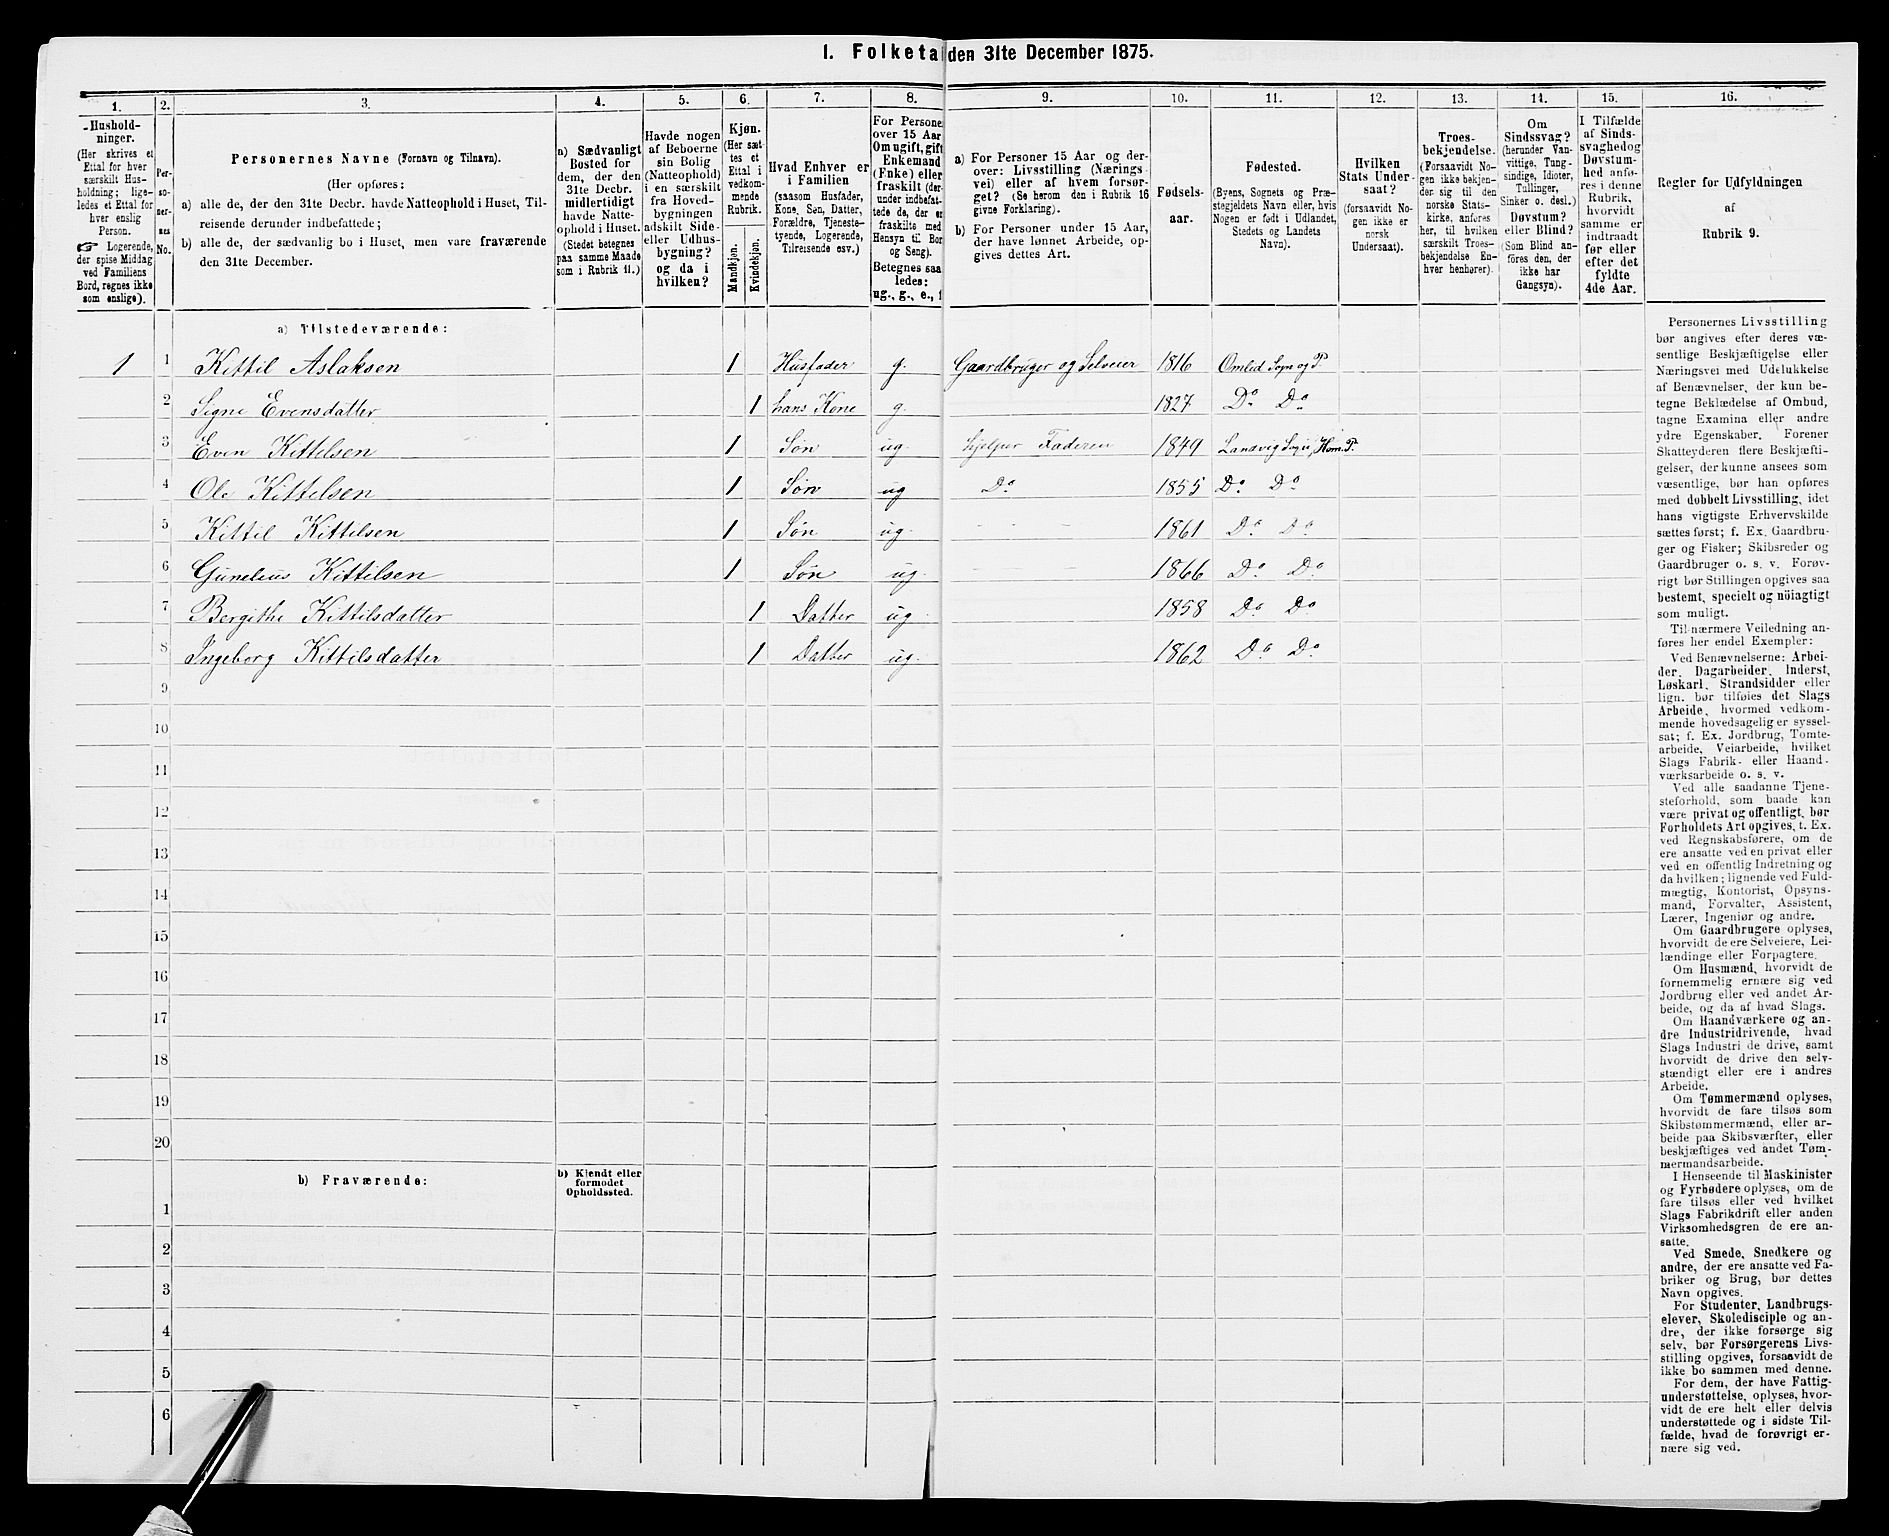 I. Folketal den 31te December 1875.
1. 2. 3. 4. 5. 6. 7. 8. 9. 10. 11. 12. 13. 14. 15. 16.
Hushold-
ninger.
(Her skrives et
Ettal for hver
særskilt Hus-
holdning; lige-
ledes et Ettal for
hver enslig
Person.
☞ Logerende,
der spise Middag
ved Familiens
Bord, regnes ikke
som enslige).
Per-
so-
ner-
nes
No.
Personernes Navne (Fornavn og Tilnavn).
(Her opføres:
a) alle de, der den 31te Decbr. havde Natteophold i Huset, Til-
reisende derunder indbefattede;
b) alle de, der sædvanlig bo i Huset, men vare fraværende
den 31te December.
a) Sædvanligt
Bosted for
dem, der den
31te Decbr.
midlertidigt
havde Natte-
ophold i Huset.
(Stedet betegnes
paa samme Maade
som i Rubrik 11.)
Havde nogen
af Beboerne
sin Bolig
(Natteophold)
i en særskilt
fra Hoved-
bygningen
adskilt Side-
eller Udhus-
bygning?
og da i
hvilken?
Kjøn.
(Her sæt-
tes et
Ettal i
vedkom-
mende
Rubrik.
Mandkjøn.
Kvindekjøn.
Hvad Enhver er
i Familien
(saasom Husfader,
Kone, Søn, Datter,
Forældre, Tjeneste-
tyende, Logerende,
Tilreisende osv.)
For Persone
over 15 Aar
Om ugift, gift
Enkemand
(Enke) eller
fraskilt (der-
under indbefat-
tede de, der er
fraskilte med
Hensyn til Bor
og Seng).
Betegnes saa
ledes:
ug., g., e., f
a) For Personer 15 Aar og der-
over: Livsstilling (Nærings
vei) eller af hvem forsør-
get? (Se herom den i Rubrik 16
givne Forklaring).
b) For Personer under 15 Aar,
der have lønnet Arbeide, op-
gives dettes Art.
Fødsels-
aar.
Fødested.
(Byens, Sognets og Præ-
stegjeldets Navn eller, hvis
Nogen er født i Udlandet,
Stedets og Landets
Navn).
Hvilken
Stats Under-
saat?
(forsaavidt No-
gen ikke er
norsk
Undersaat).
Troes-
bekjendelse.
(Forsaavidt No-
gen ikke bekjen-
der sig til den
norske Stats-
kirke, anføres
her, til hvilken
særskilt Troes-
bekjendelse En-
hver henhører).
Om
Sindssvag?
(herunder Van-
vittige, Tung-
sindige, Idioter,
Tullinger,
Sinker o. desl.)
Døvstum?
eller Blind?
(Som Blind an-
føres den, der
ikke har
Gangsyn).
I Tilfælde
af Sinds-
svaghed og
Døvstum-
hed anfø-
res i denne
Rubrik,
hvorvidt
samme er
indtraadt
før eller
efter det
fyldte
4de Aar.
Regler for Udfyldningen
af
Rubrik 9.
a) Tilstedeværende:
1 1 Kittil Aslaksen 1 Husfader g. Gaardbruger og Selveier 1816 Omlid Sogn og P.
2 Signe Evensdatter 1 hans Kone g. 1827 Do Do
3 Even Kittelsen 1 Søn ug. hjelper Faderen 1849 Landvig Sogn, Hom. P.
4 Ole Kittelsen 1 Søn ug Do 1855 Do Do
5 Kittil Kittilsen 1 Søn ug. - - - 1861 Do Do
6 Gunelius Kittilsen 1 Søn ug. 1866 Do Do
7 Bergithe Kittilsdatter 1 Datter ug. 1858 Do Do
8 Ingeborg Kittilsdatter 1 Datter ug. 1862 Do Do
9
10
11
12
13
14
15
16
17
18
19
20
b) Fraværende:
b) Kjendt eller
formodet
Opholdssted.
1
2
3
4
5
6
Personernes Livsstilling
bør angives efter deres væ-
sentlige Beskjæftigelse eller
Næringsvei med Udelukkelse
af Benævnelser, der kun be-
tegne Beklædelse af Ombud,
tagne Examina eller andre
ydre Egenskaber. Forener
Skatteyderen flere Beskjæfti-
gelser, der kunne ansees som
væsentlige, bør han opføres
med dobbelt Livsstilling, idet
hans vigtigste Erhvervskilde
sættes først; f. Ex. Gaardbru-
ger og Fisker; Skibsreder og
Gaardbruger o. s. v. Forøv-
rigt bør Stillingen opgives saa
bestemt, specielt og nöiagtigt
som muligt.
Til nærmere Veiledning an-
føres her endel Exempler:
Ved Benævnelserne: Arbei-
der, Dagarbeider, Inderst,
Løskarl, Strandsidder eller
lign. bør tilføies det Slags
Arbeide, hvormed vedkom-
mende hovedsagelig er syssel-
sat; f. Ex. Jordbrug, Tomte-
arbeide, Veiarbeide, hvilket
Slags Fabrik- eller Haand-
værksarbeide o. s. v.
Ved alle saadanne Tjene-
steforhold, som baade kan
være privat og offentligt, bør
Forholdets Art opgives, t. Ex.
ved Regnskabsførere, om de
ere ansatte ved en privat eller
ved en offentlig Indretning og
da hvilken; lignende ved Fuld-
mægtig, Kontorist, Opsyns-
mand, Forvalter, Assistent,
Lærer, Ingeniør og andre.
Om Gaardbrugere oplyses,
hvorvidt de ere Selveiere, Lei-
lændinge eller Forpagtere.
Om Husmænd, hvorvidt de
fornemmelig ernære sig ved
Jordbrug eller ved andet Ar-
beide, og da af hvad Slags.
Om Haandværkere og an-
dre Industridrivende, hvad
Slags Industri de drive, samt
hvorvidt de drive den selv-
stændigt eller ere i andres
Arbeide.
Om Tømmermænd oplyses,
hvorvidt de fare tilsøs som
Skibstømmermænd, eller ar-
beide paa Skibsværfter, eller
beskjæftiges ved andet Tøm-
mermandsarbeide.
I Henseende til Maskinister
og Fyrbødere oplyses, om de
fare tilsøs eller ved hvilket
Slags Fabrikdrift eller anden
Virksomhedsgren de ere an-
satte.
Ved Smede, Snedkere og
andre, der ere ansatte ved Fa-
briker og Brug, bør dettes
Navn opgives.
For Studenter, Landbrugs-
elever, Skoledisciple og an-
dre, der ikke forsørge sig
selv, bør Forsørgerens Livs-
stilling opgives, forsaavidt de
ikke bo sammen med denne.
For dem, der have Fattig-
understøttelse, oplyses, hvor-
vidt de ere helt eller delvis
understøttede og i sidste Til-
fælde, hvad de forøvrigt er-
nære sig ved.